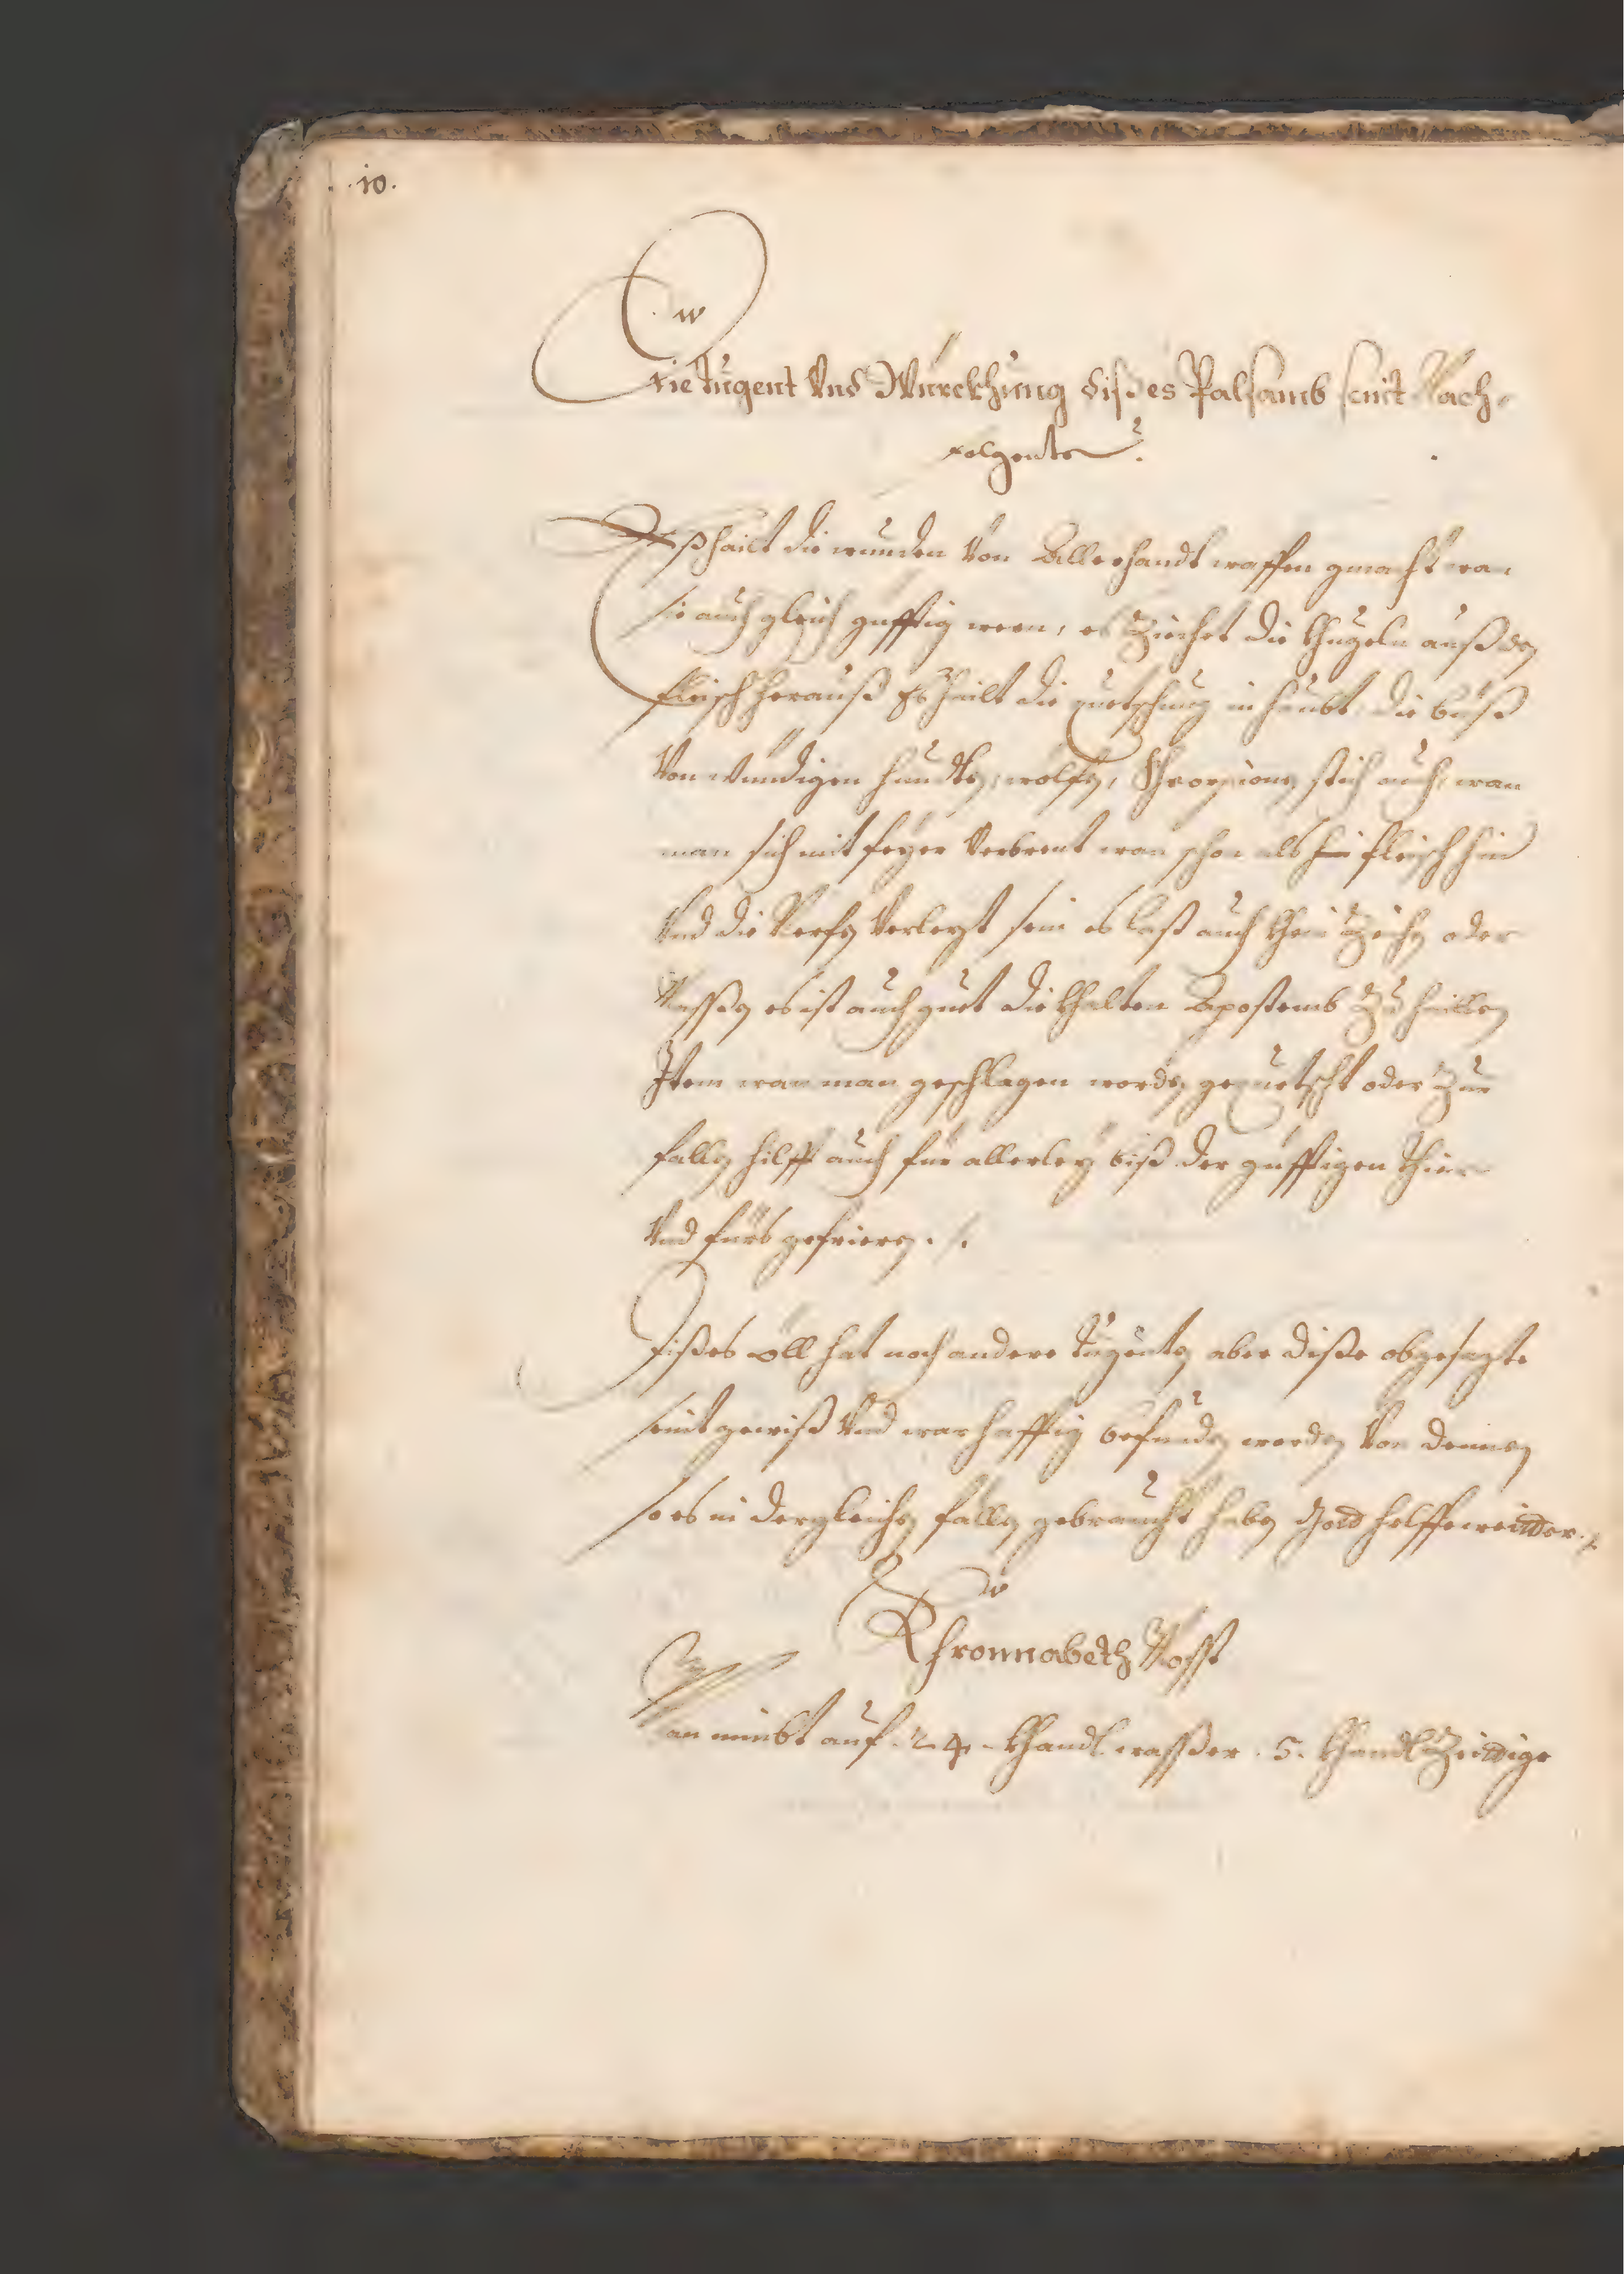 .10.
Die tugent Vnd Würckhung dißes Palsamb seint Nach-
folgente.
Eß hailt die wunden Von Allerhandt waffen gmacht wan
sie auch gleich güfftig weren, es Ziechet die Khugeln auß den
fleisch herauß Es hailt die quetschung in haubt, die biiß
Von wündigen hundten, wolfen, Skhorpionen stich auch, wan
man sich mit feyer Verbrent wan schon als fleisch hin
Vnd die Nerfen Verlezt sein es last auch khein Zeichen oder
Massen es ist auch guet die khalten Apostemb Zu haillen
Item wan man geschlagen worden gequetscht oder Zur
fallen hilfft auch für allerley biß der güfftigen thier
Vnd fürs gefrieren ./.
Dißes öll hat noch andere tugenten aber diße obgesagte
seint gewiß Vnd warhafftig befunden worden Von dennen
so es in dergleichen fällen gebraucht haben Gott helffe weitter ./.
Khronnabeth Mosst
Man nimbt auf .24. Khandl wasser .5. Khandl Zeittige